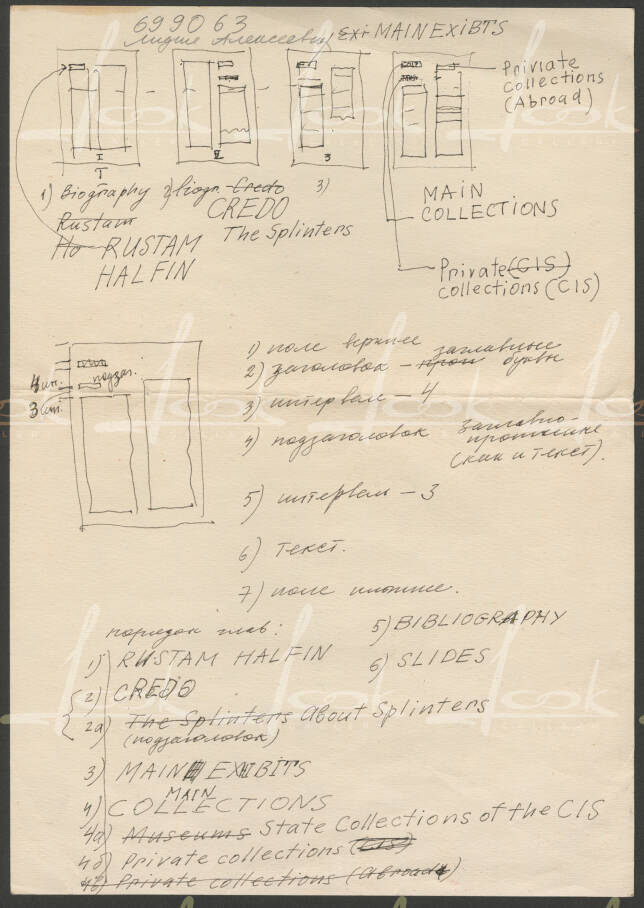 699063
Лидия Алексеевна Exi MAIN EXiBTS
Private
collections
(Abroad)
I
II
3
1) Biography 2) Biogr. Credo 3)
Rustam CREDO
Ho RUSTAM The Splinters
HALFIN
MAIN
COLLECTIONS
Private (CIS)
collections (CIS)
подзаг.
4 инт.
3 инт.
1) поле верхнее
2) заголовок – проп заглавные буквы
3) интервал – 4
4) подзаголовок заглавно-
прописные
(как и текст).
5) интервал – 3
6) Текст.
7) поле нижнее.
порядок глав:
1) RUSTAM HALFIN
2) CREDO
2а) The Splinters About Splinters
(подзаголовок)
3) MAIN EXHIBITS
4) MAIN COLLECTIONS
4а) Museums State Collections of the CIS
4б) Private collections (CIS)
4в) Private collections (Abroad)
5) BIBLIOGRAPHY
6) SLIDES
look
look
look
look
look
look
look
look
look